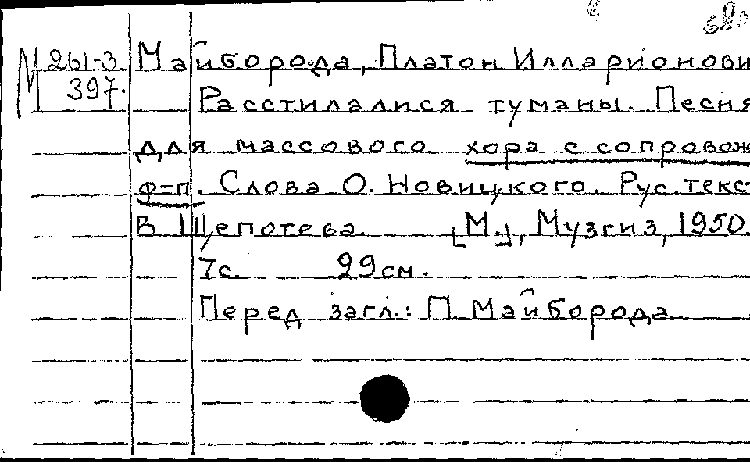 М 261-3
397.
Майборода, Платон Илларионови
Расстилалися туманы. Песня
для массового хора с сопровож
ф-п. Слова О. Новицкого. Рус. текст
В Щепотева [М.], Музгиз, 1950.
7с. 29см.
Перед загл.: П. Майборода